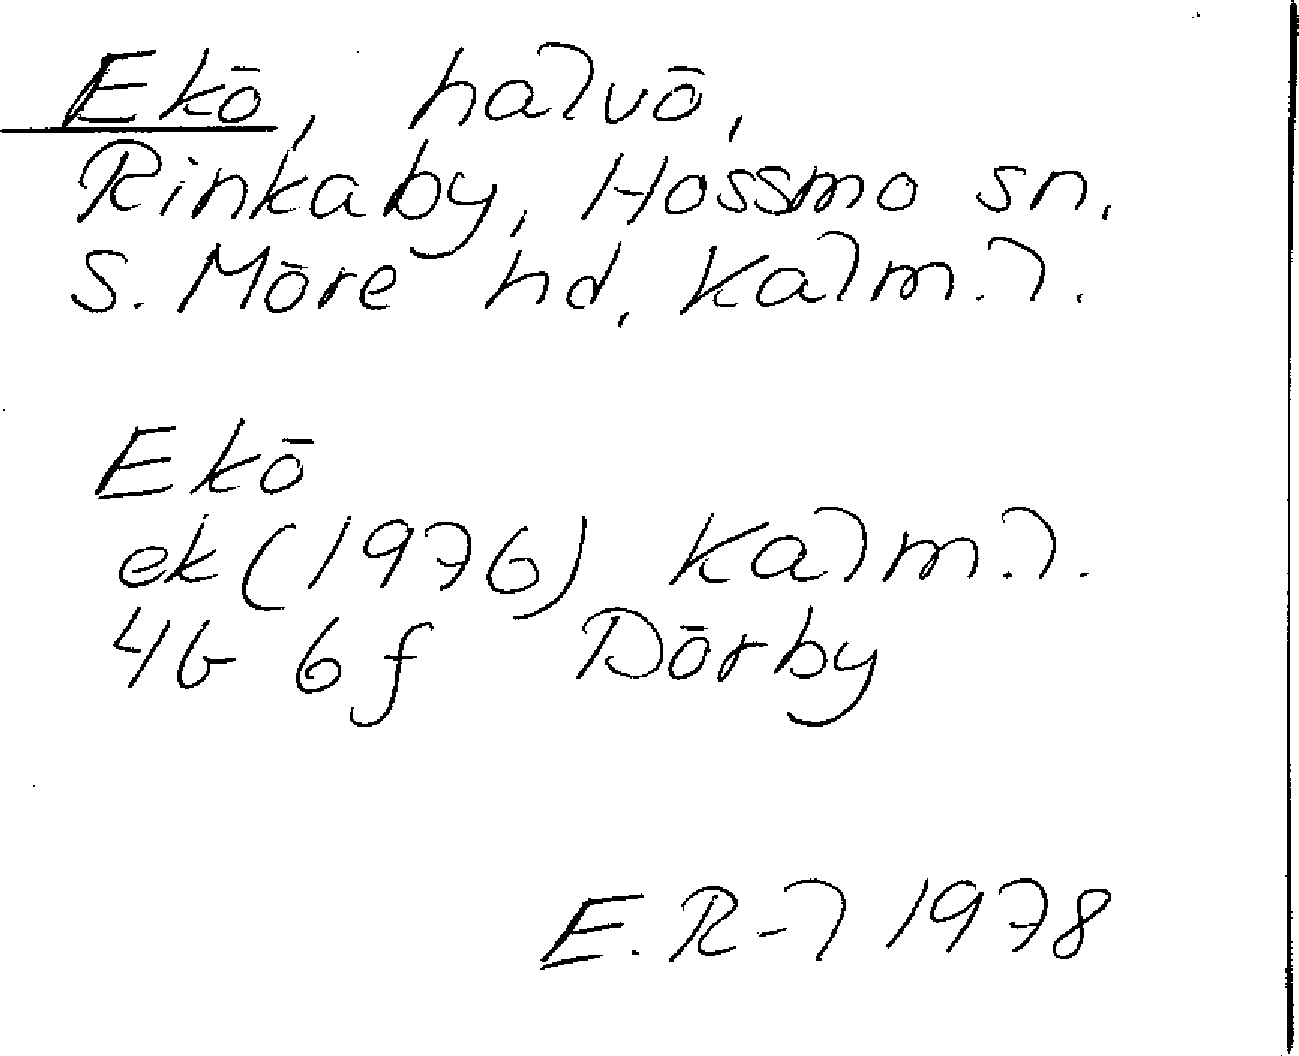 Ekö, halvö,
Rinkaby, Hossmo sn,
S. Möre hd, Kalm.l.
Ekö
ek (1976) Kalm.l.
4G 6f Dörby
E.R-l 1978